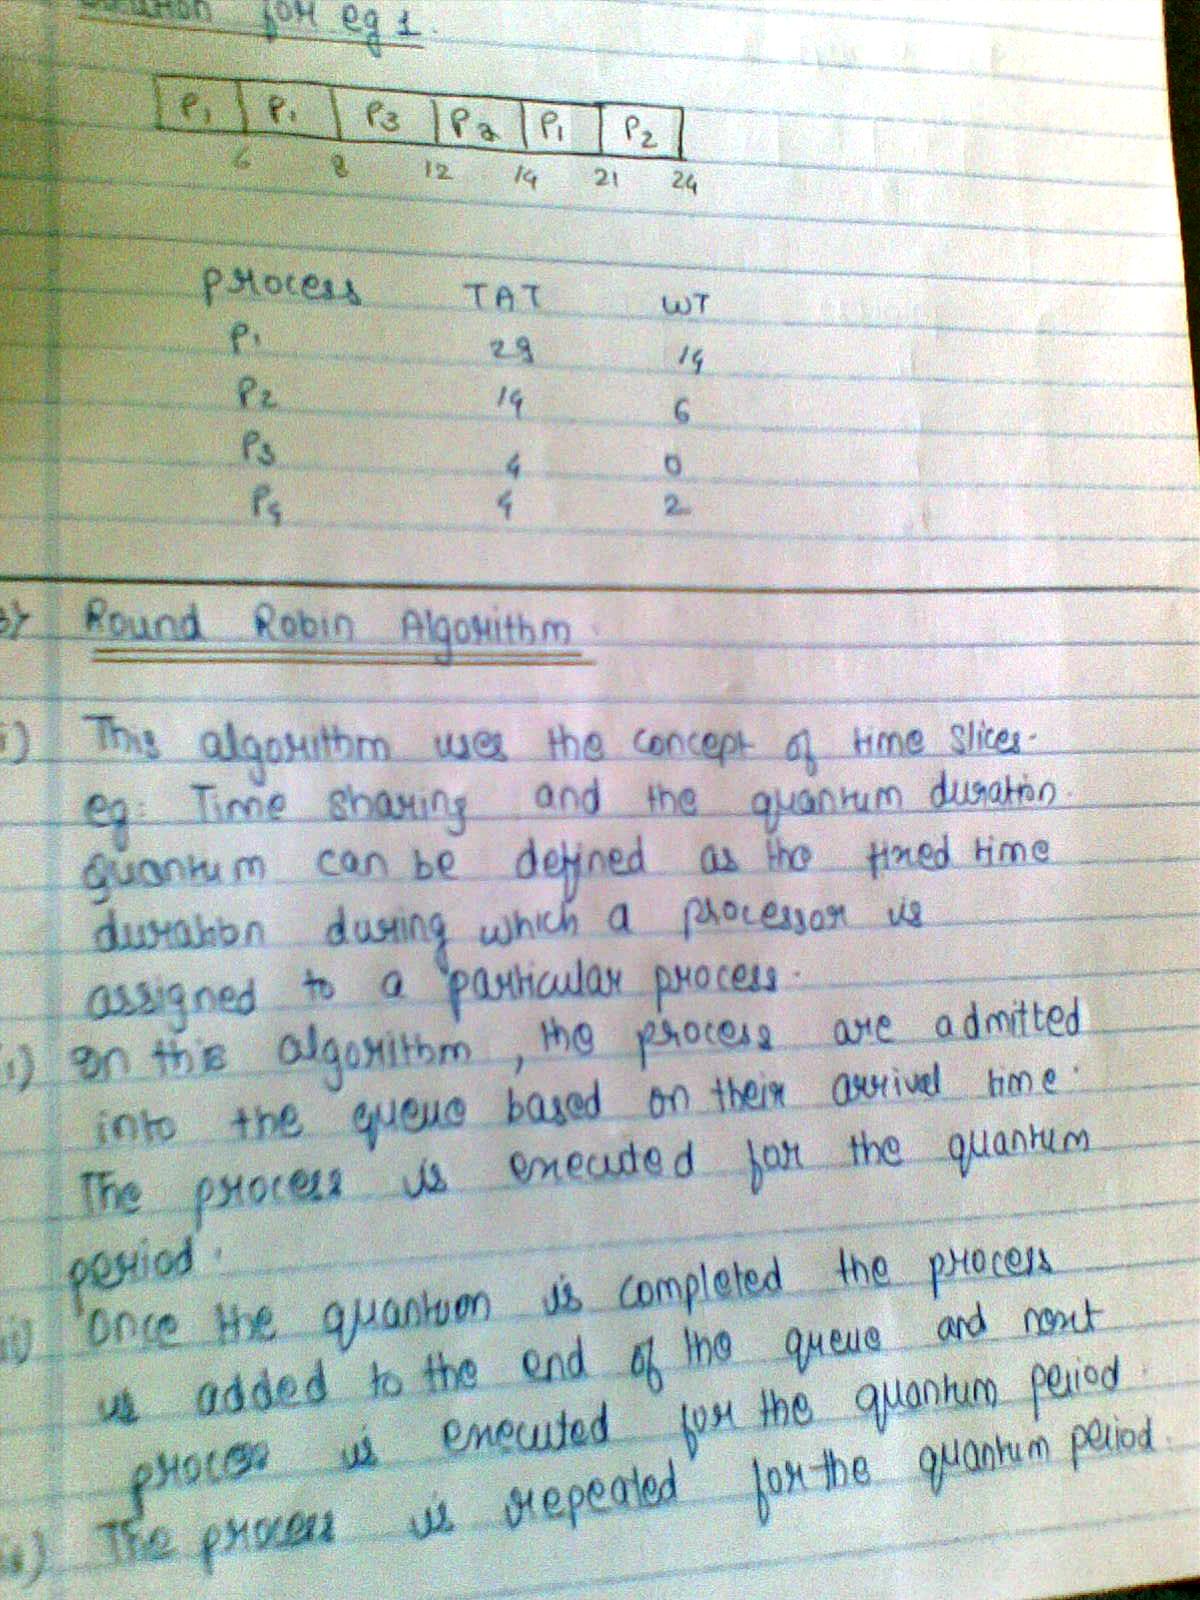 for eg 1.
P1 P1 P3 P2 P1 P2
6 8 12 14 21 24
process TAT WT
P1 29 14
P2 14 6
P3 4 0
P4 4 2
3) Round Robin Algorithm
i) This algorithm uses the concept of time slices.
eg: Time sharing and the quantum duration.
quantum can be defined as the fixed time
duration during which a processor is
assigned to a particular process.
ii) In this algorithm, the process are admitted
into the queue based on their arrival time.
The process is executed for the quantum
period.
iii) Once the quantum is completed the process
is added to the end of the queue and next
process is executed for the quantum period.
The process is repeated for the quantum period.